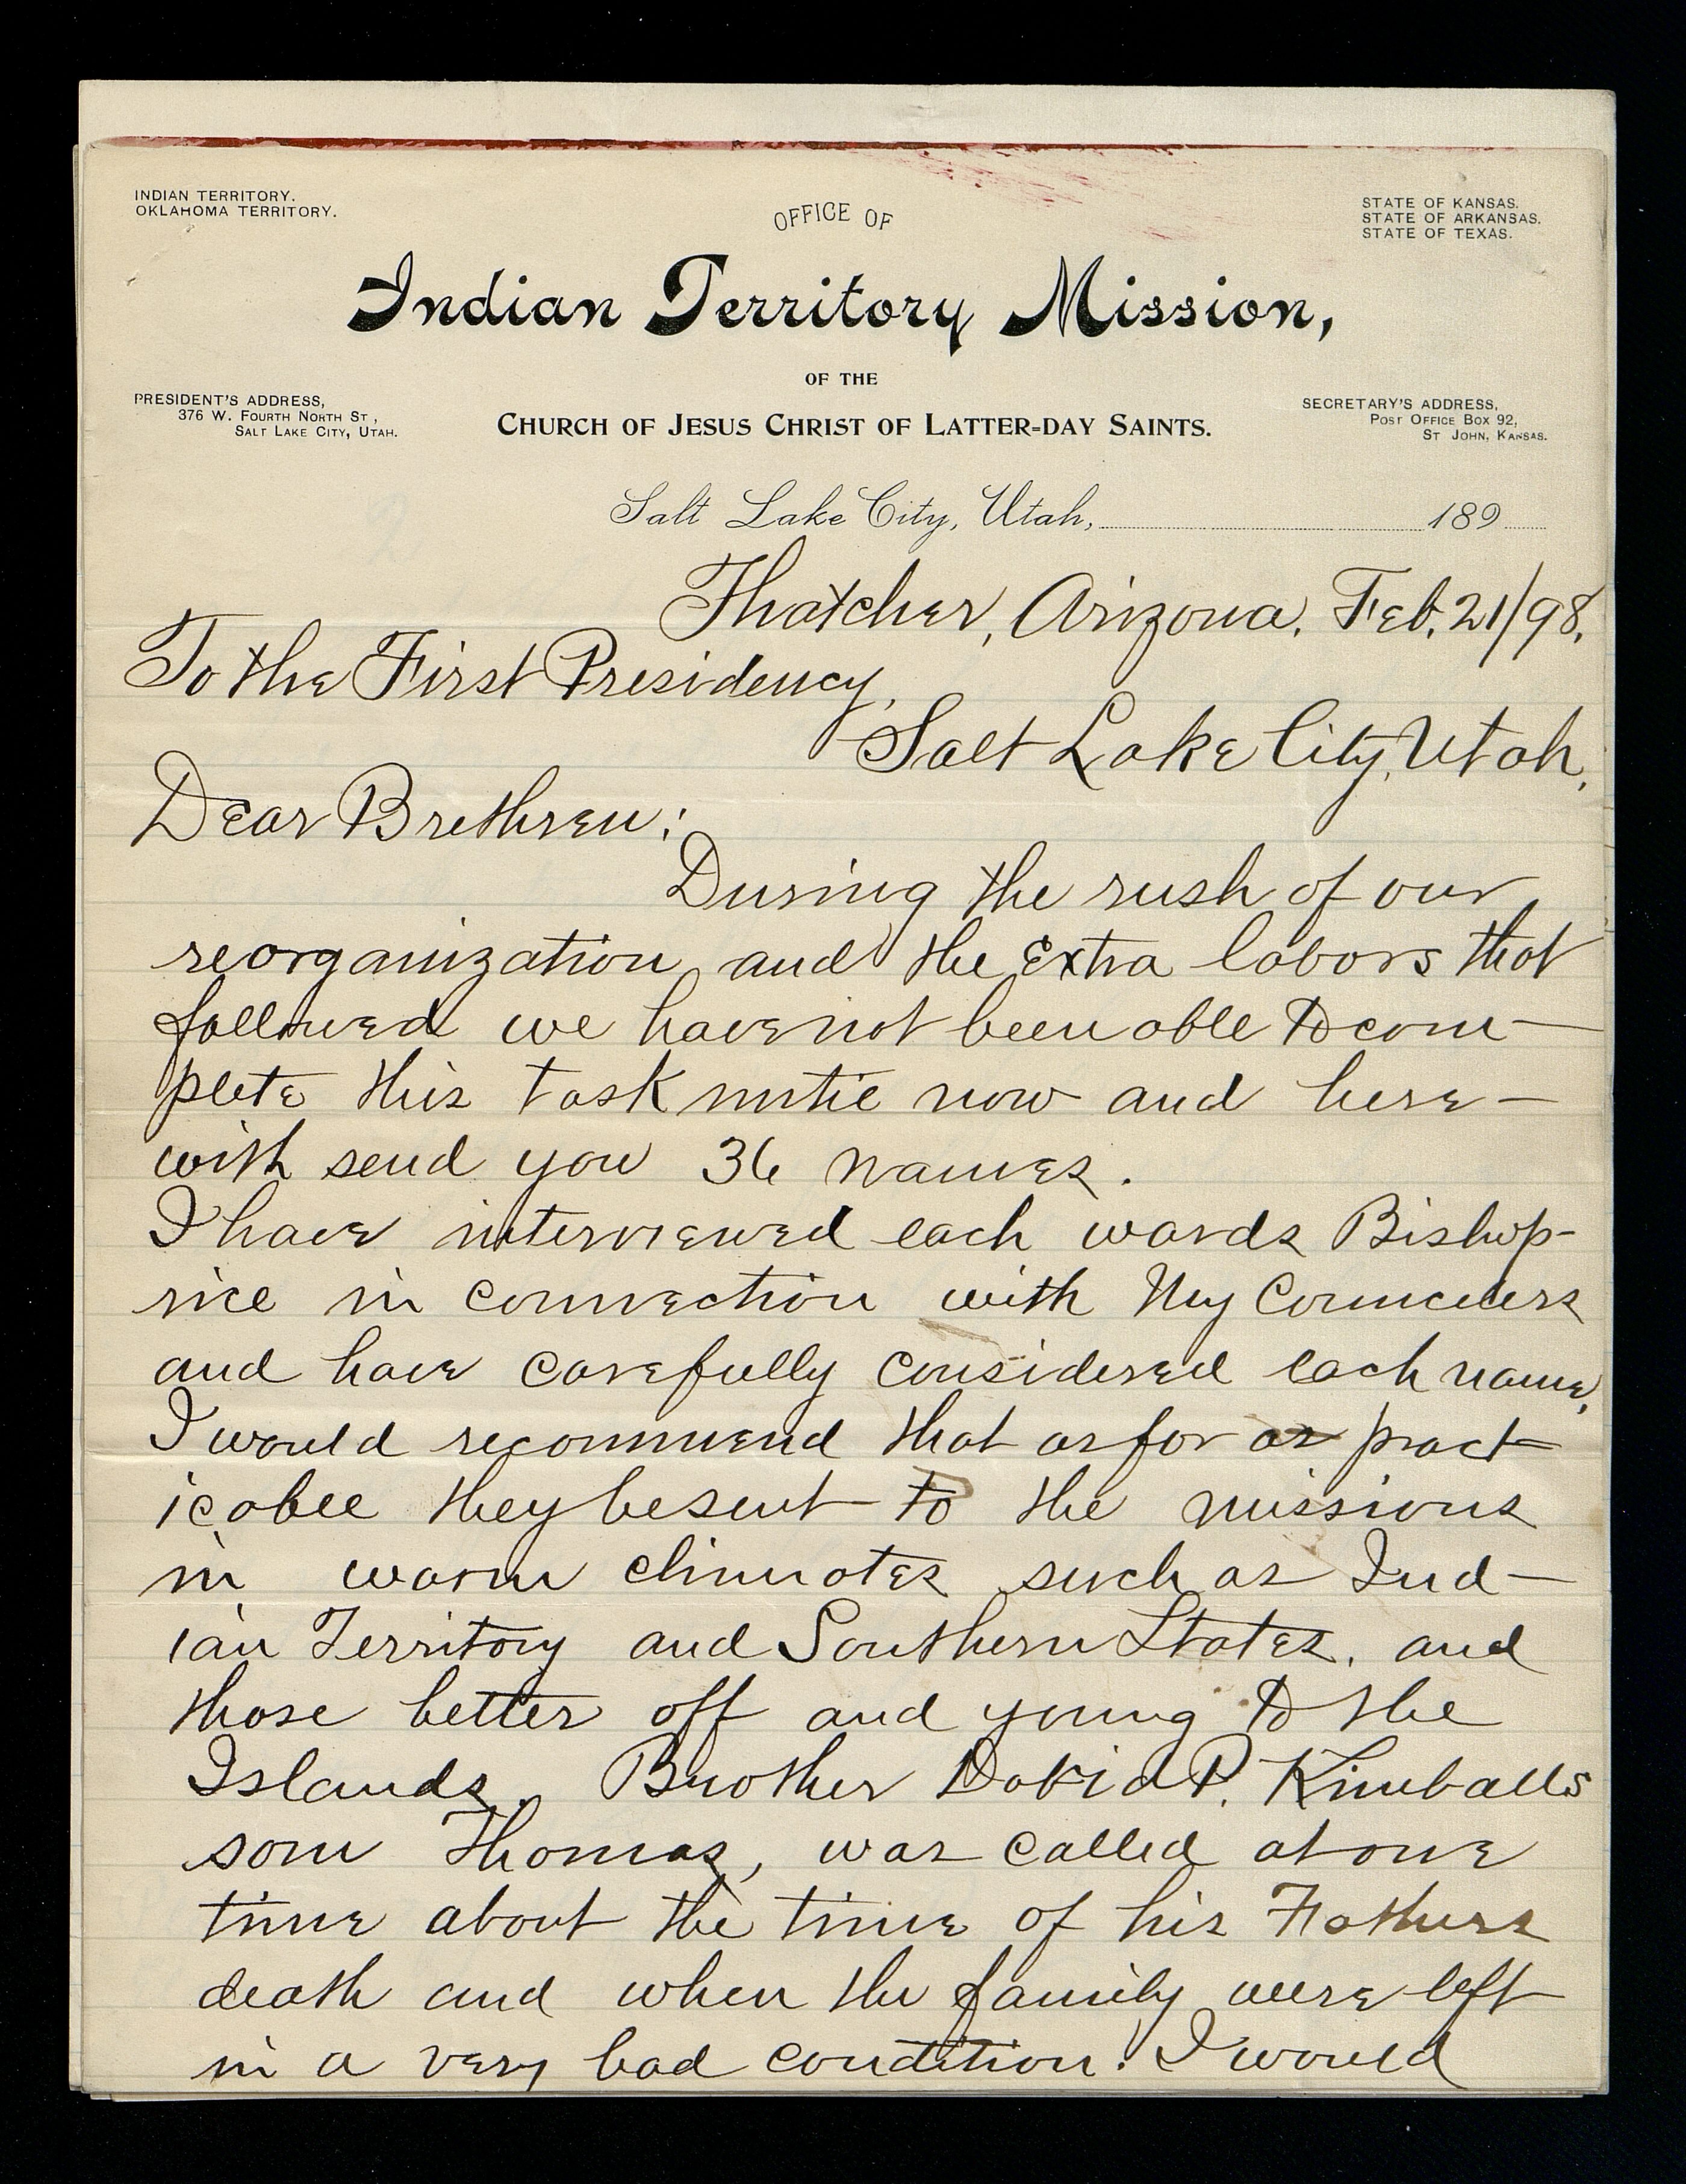 INDIAN TERRITORY.
OKLAHOMA TERRITORY.
OFFICE OF
STATE OF KANSAS.
STATE OF ARKANSAS.
STATE OF TEXAS.
Indian Territory Mission,
OF THE
PRESIDENT'S ADDRESS,
376 W. FOURTH NORTH ST,
SALT LAKE CITY, UTAH.
CHURCH OF JESUS CHRIST OF LATTER-DAY SAINTS.
SECRETARY'S ADDRESS,
POST OFFICE BOX 92,
ST JOHN, KANSAS.
Salt Lake City, Utah, 189
Thatcher, Arizona, Feb. 21/98.
To the First Presidency,
Salt Lake City, Utah.
Dear Brethren:
During the rush of our
reorganization and the extra labors that
followed we have not been able to com-
plete this task until now and here-
with send you 36 names.
I have interviewed each wards Bishop-
rice in connection with My Councelers
and have carefully considered each name,
I would recommend that as far as pract-
icable they be sent to the missions
in warm climates such as Ind-
ian Territory and Southern States, and
those better off and young to the
Islands. Brother David P. Kimballs
son Thomas, was called at one
time about the time of his Fathers
death and when the family were left
in a very bad condition. I would